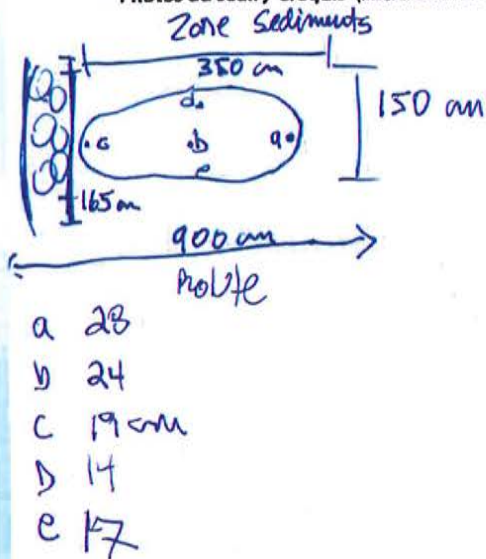 Zone Sediments
350 cm
150 cm
d.
.c
.b
a.
e
165 cm
900 cm
a 28
b 24
C 19 cm
D 14
e 17